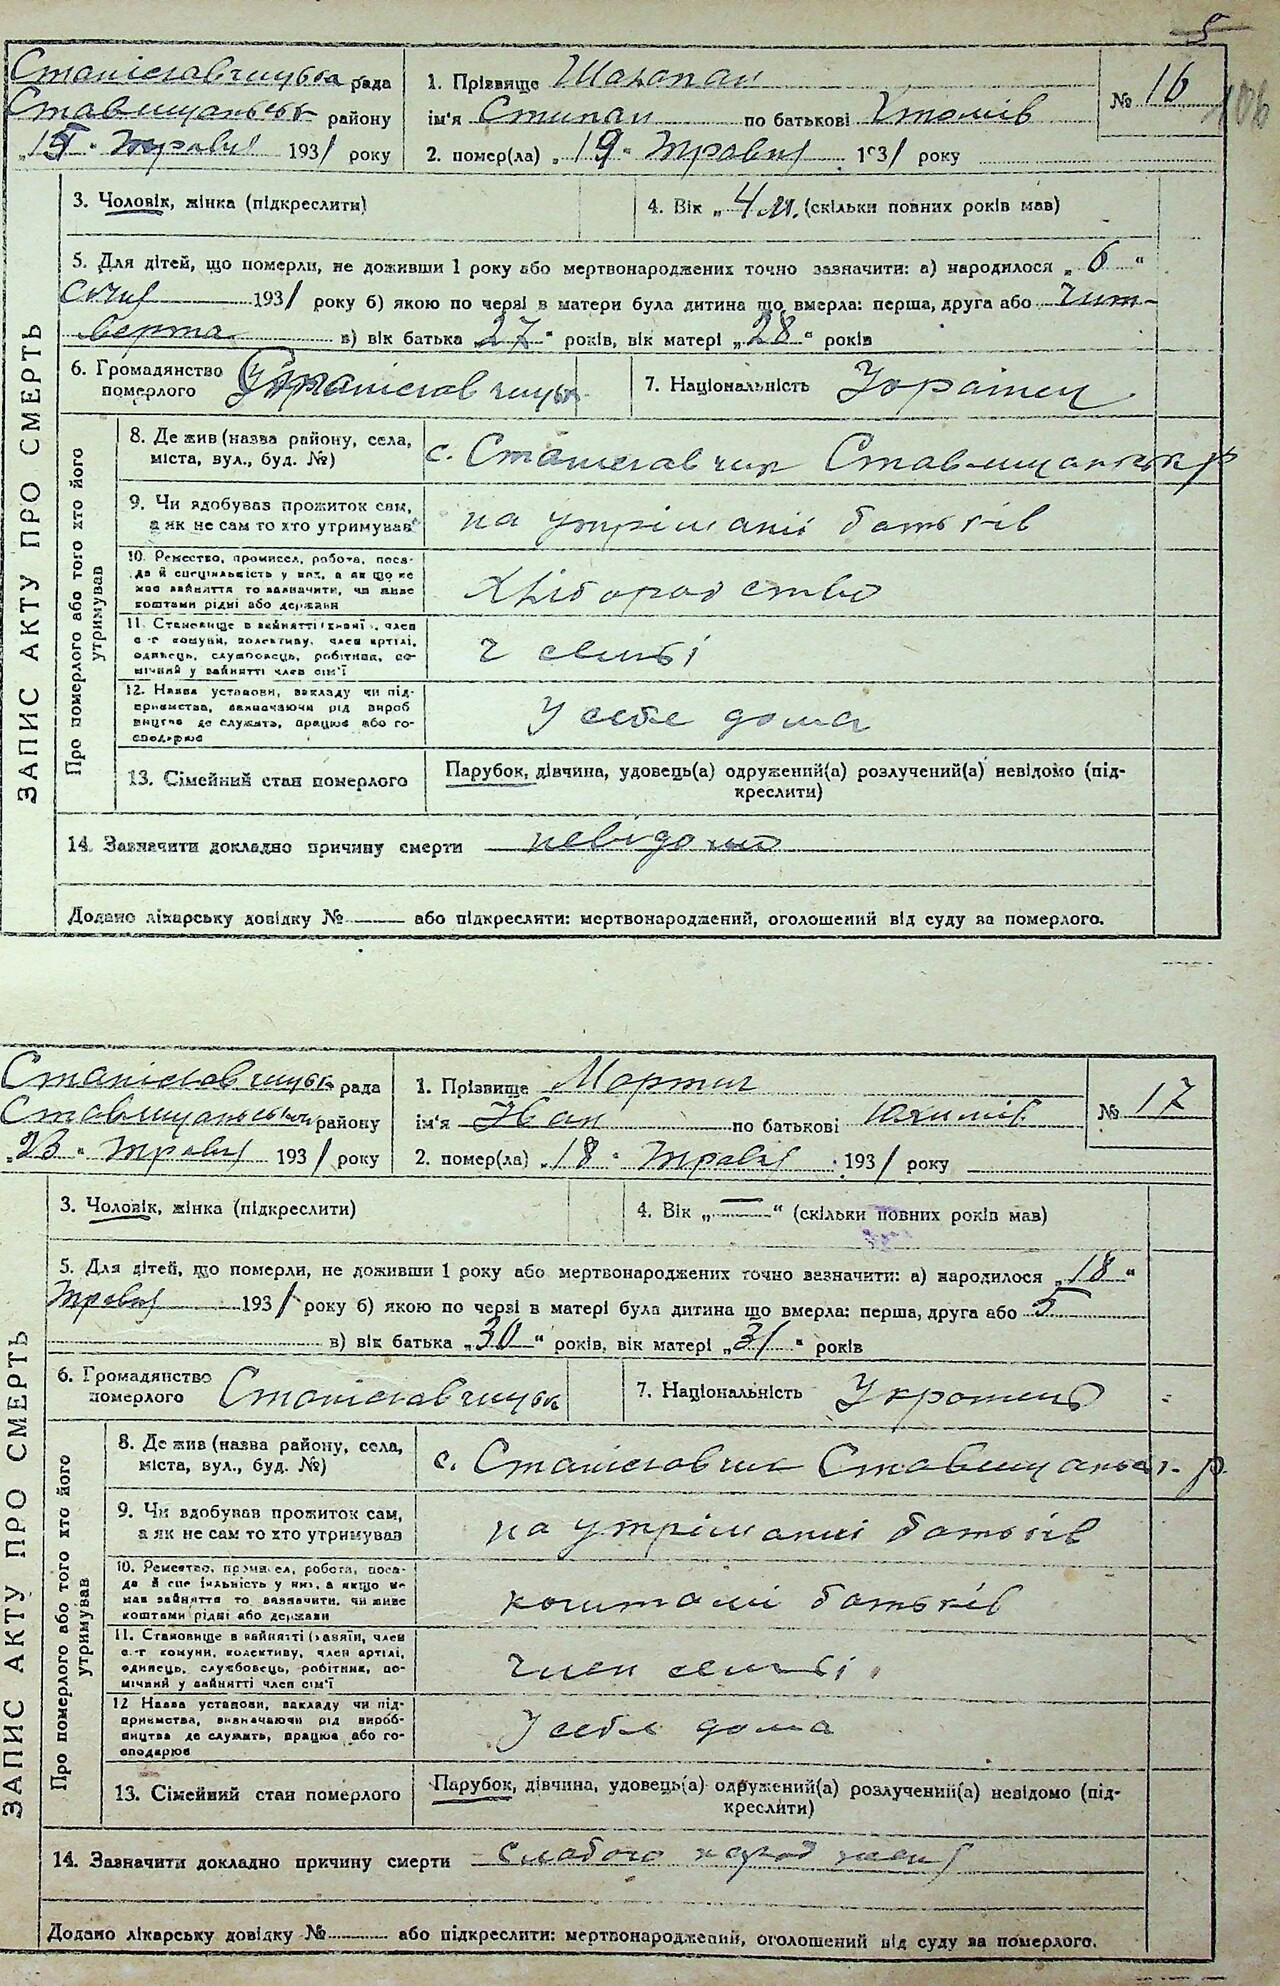 5
106
Станіславчицька рада
Ставищанськ району
"15" Травня 1931 року
1. Прізвище
ім'я Степан по батькові
2. помер(ла) "19" Травня 1931 року
№ 16
ЗАПИС АКТУ ПРО СМЕРТЬ
3. Чоловік, жінка (підкреслити)
4. Вік „4 м. (скільки повних років мав)
5. Для дітей, що померли, не доживши 1 року або мертвонароджених точно зазначити: а) народилося „6“
січня 1931 року б) якою по черзі в матери була дитина що вмерла: перша, друга або чит-
верта в) вік батька „27“ років, вік матері „28“ років
6. Громадянство
померлого Станіславчицьк
7. Національність Украінец
Про померлого або того хто його
утримував
8. Де жив (назва району, села,
міста, вул., буд. №)
с. Станіславчик Ставищанськ р
9. Чи здобував прожиток сам,
а як не сам то хто утримував
на утріманні батьків
10. Ремество, промисел, робота, поса-
да й спеціяльність у них, а як що не
мав зайняття то зазначити, чи живе
коштами рідні або держави
Хліборобство
11. Становище в зайнятті (хазяїн, член
с.-г комуни, колективу, член артілі,
одинець, службовець, робітник, по-
мічний у зайнятті член сім'ї
ч семьі
12. Назва установи, закладу чи під-
приємства, зазначаючи рід вироб
ництва де служить, працює або го-
сподарює
У себе дома
13. Сімейний стан померлого
Парубок, дівчина, удовець(а) одружений(а) розлучений(а) невідомо (під-
креслити)
14. Зазначити докладно причину смерти невідомо
Додано лікарську довідку № або підкреслити: мертвонароджений, оголошений від суду за померлого.
Станіславчицька рада
Ставищанськ району
"23" Травня 1931 року
1. Прізвище Мартин
ім'я Іван по батькові Юхимів
2. помер(ла) „18“ Травня 1931 року
№ 17
ЗАПИС АКТУ ПРО СМЕРТЬ
3. Чоловік, жінка (підкреслити)
4. Вік „—“ (скільки повних років мав)
5. Для дітей, що померли, не доживши 1 року або мертвонароджених точно зазначити: а) народилося „18“
Травня 1931 року б) якою по черзі в матері була дитина що вмерла: перша, друга або 5
в) вік батька „30“ років, вік матері „31“ років
6. Громадянство
померлого Станіславчицьк
7. Національність Украінець
Про померлого або того хто його
утримував
8. Де жив (назва району, села,
міста, вул., буд. №)
с. Станіславчик Ставищанськ. р.
9. Чи здобував прожиток сам,
а як не сам то хто утримував
на утріманні батьків
10. Ремество, промисел, робота, поса-
да й спеціяльність у них, а якщо не
мав зайняття то зазначити, чи живе
коштами рідні або держави
коштамі батьків
11. Становище в зайнятті (хазяїн, член
с.-г комуни, колективу, член артілі,
одинець, службовець, робітник, по-
мічний у зайнятті член сім'ї
член семьі
12 Назва установи, закладу чи під-
приємства, визначаючи рід вироб-
ництва де служить, працює або го-
сподарює
У себе дома
13. Сімейний стан померлого
Парубок, дівчина, удовець(а) одружений(а) розлучений(а) невідомо (під-
креслити)
14. Зазначити докладно причину смерти слабого
Додано лікарську довідку № або підкреслити: мертвонароджений, оголошений від суду за померлого.